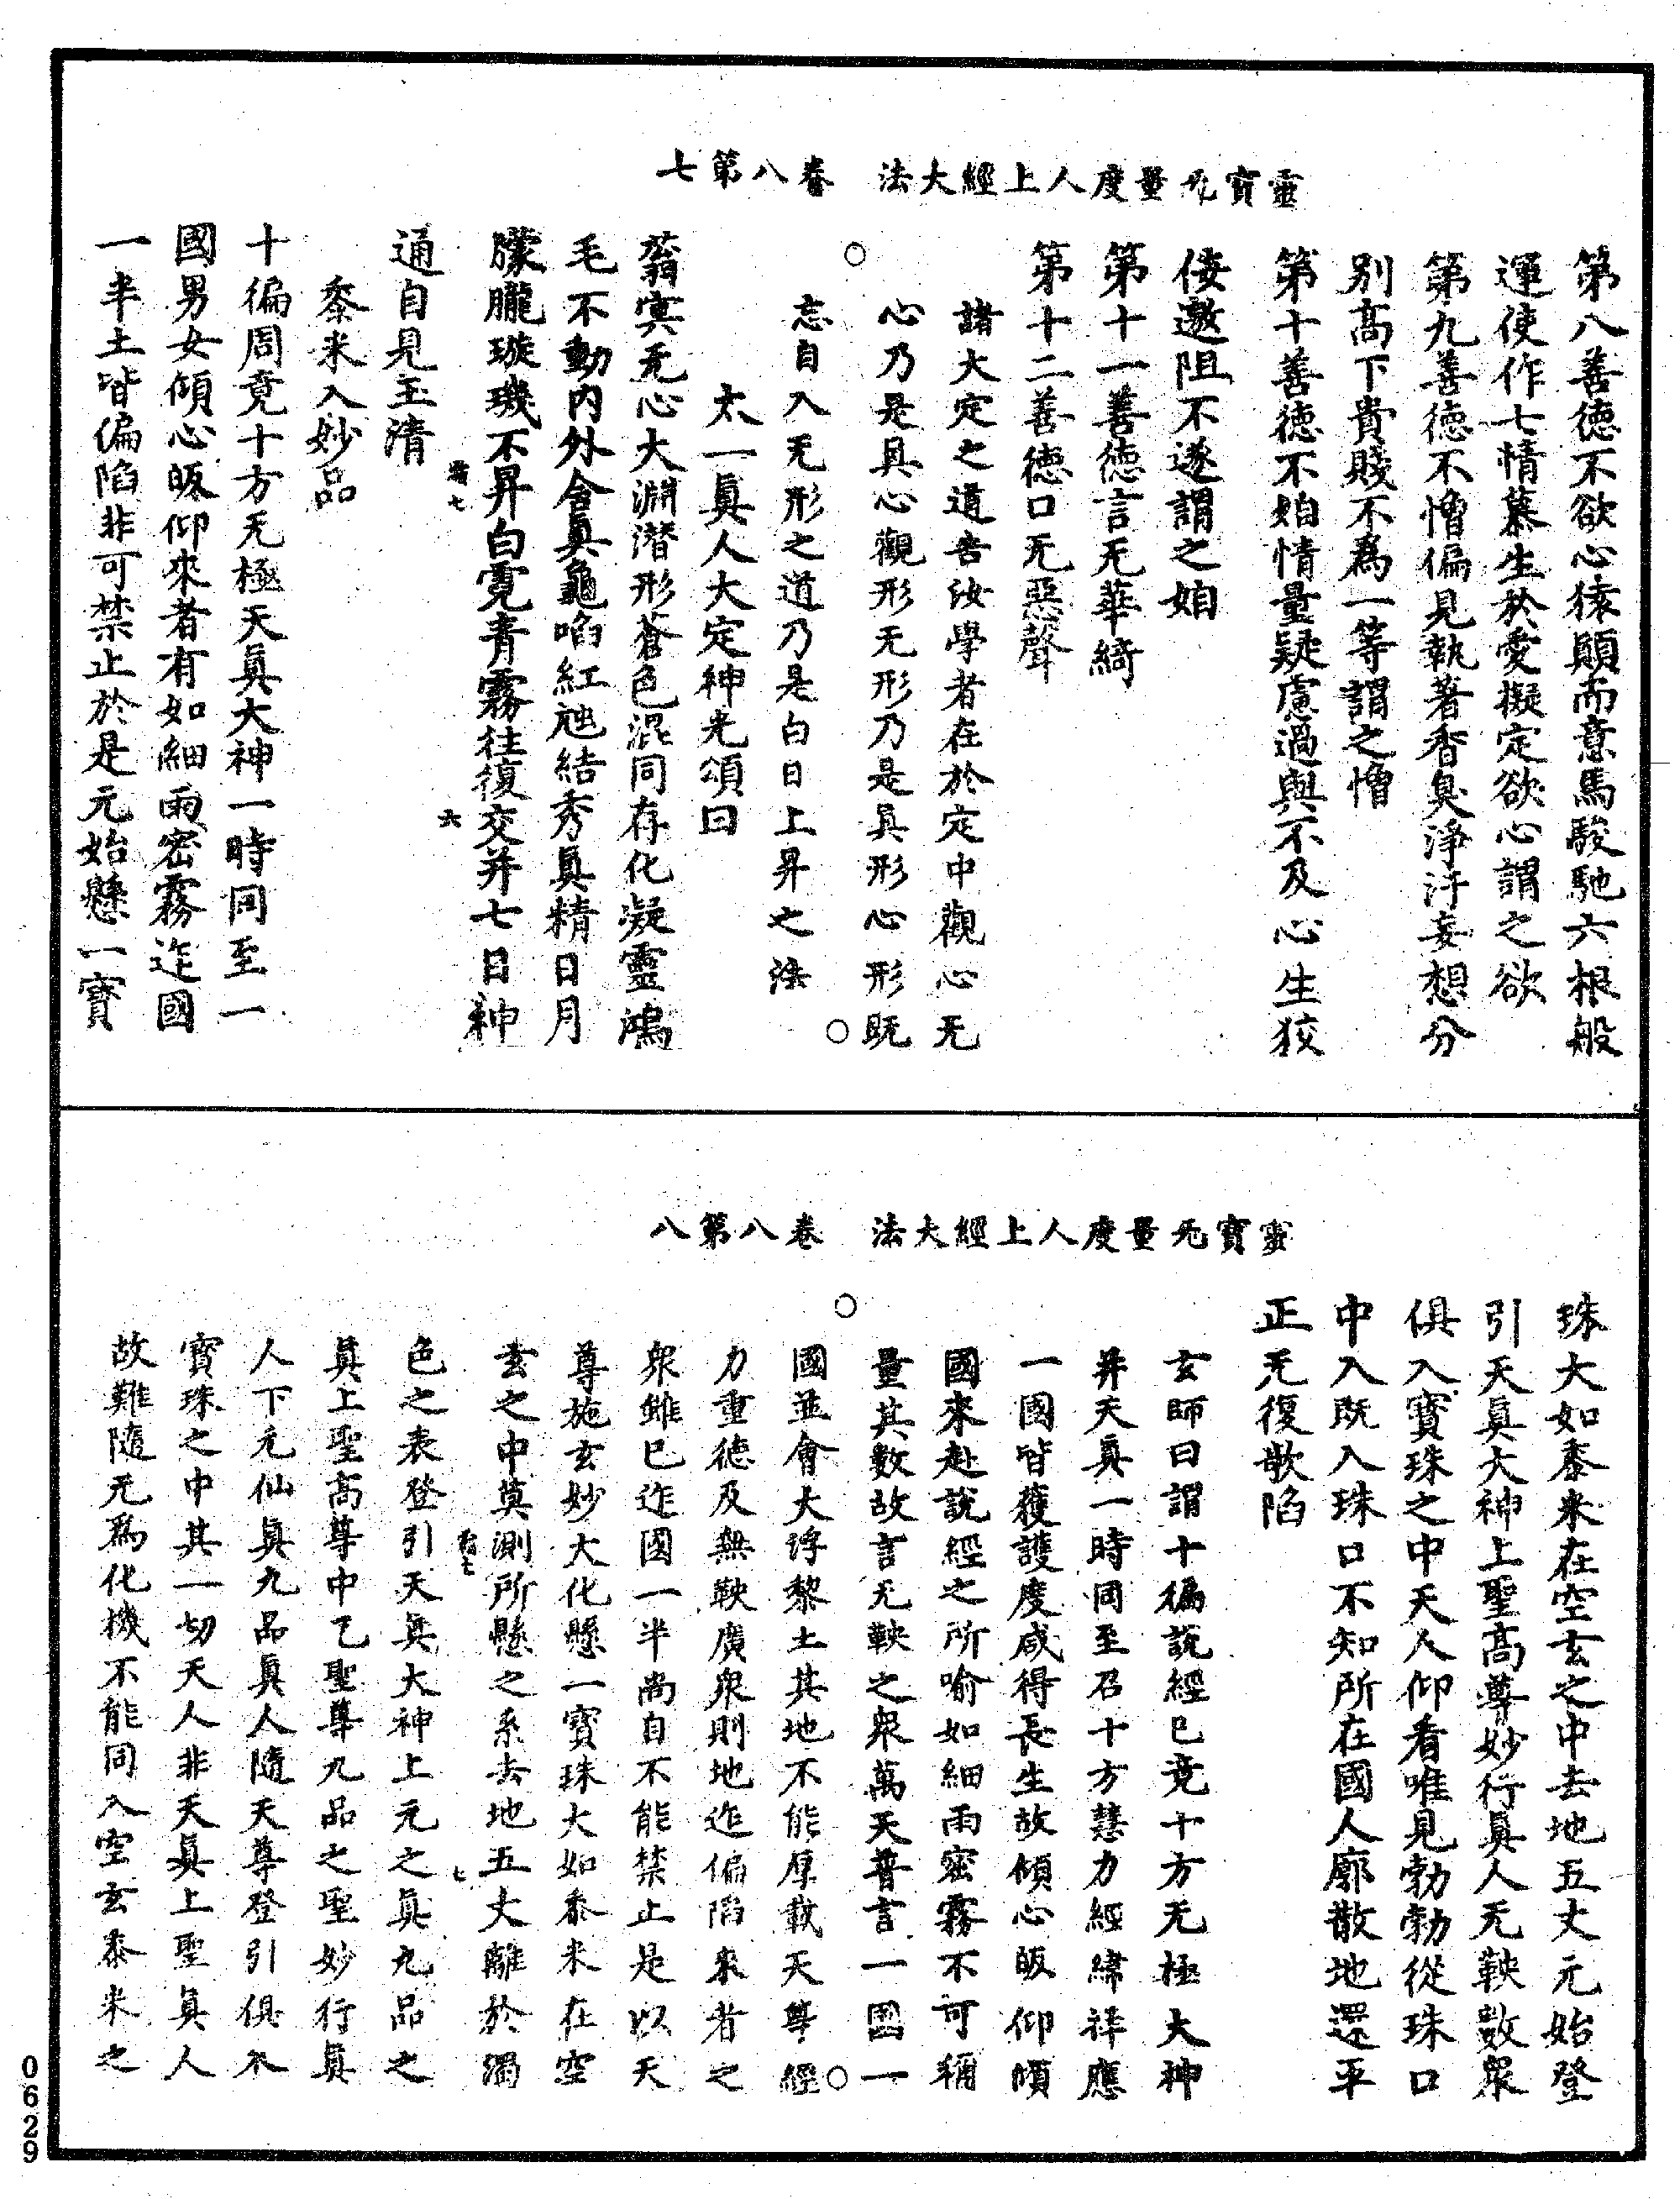 靈寶无量度人上經大法 卷八第七
第八善德不欲心猿顛而意馬駿馳六根般
運使作七情慕生於愛擬定欲心謂之欲
第九善德不憎偏見執著香臭淨汙妄想分
別高下貴賤不爲一等謂之憎
第十善德不妬情量疑慮過與不及心生狡
倿邀阻不遂謂之妬
第十一善德言无華綺
第十二善德口无惡聲
諸大定之道告汝學者在於定中觀心无
心乃是真心觀形无形乃是真形心形旣
忘自入无形之道乃是白日上昇之法
太一真人大定神光頌曰
蓊寞无心大淵潛形蒼色混同存化凝靈鴻
毛不動內外含真龜啗紅虵結秀真精日月
朦朧璇璣不昇白霓青霧往復交并七日神
通自見玉清
黍米入妙品
十徧周竟十方无極天真大神一時同至一
國男女傾心皈仰來者有如細雨密霧迮國
一半土皆偏陷非可禁止於是元始懸一寶
六
靈寶无量度人上經大法 卷八第八
珠大如黍米在空玄之中去地五丈元始登
引天真大神上聖高尊妙行真人无鞅數衆
俱入寶珠之中天人仰看唯見勃勃從珠口
中入旣入珠口不知所在國人廓散地還平
正无復欹陷
玄師曰謂十徧說經已竟十方无極大神
并天真一時同至召十方慧力經緯祥應
一國皆獲護度咸得長生故傾心皈仰傾
國來赴說經之所喻如細雨密霧不可稱
量其數故言无鞅之衆萬天普言一國一
國並會大浮黎土其地不能厚載天尊經
力重德及無鞅廣衆則地迮偏陷來者之
衆雖已迮國一半尚自不能禁止是以天
尊施玄妙大化懸一寶珠大如黍米在空
玄之中莫測所懸之系去地五丈離於濁
色之表登引天真大神上元之真九品之
真上聖高尊中乙聖尊九品之聖妙行真
人下元仙真九品真人隨天尊登引俱入
寶珠之中其一切天人非天真上聖真人
故難隨无爲化機不能同入空玄黍米之
七
0629